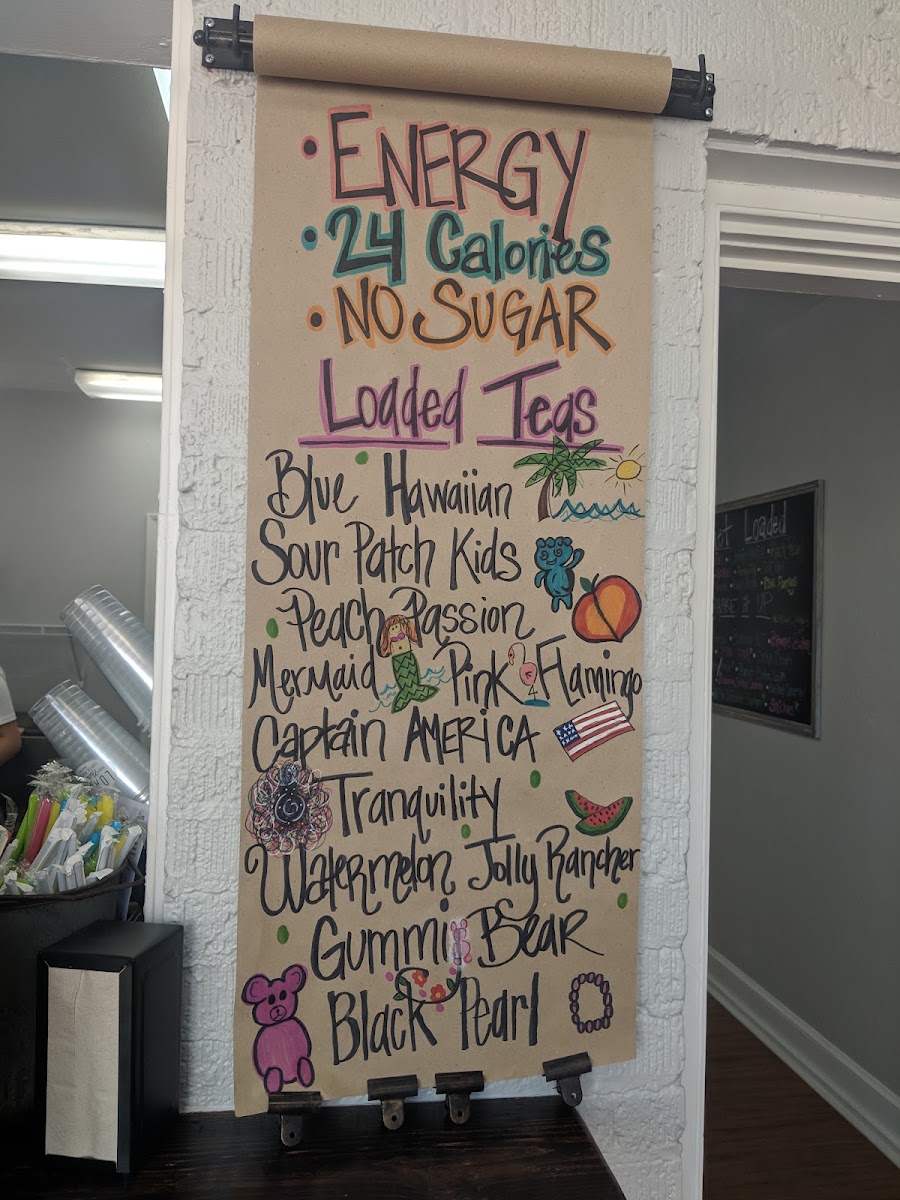 • ENERGY
• 24 Calories
• NO SUGAR
Loaded Teas
Blue Hawaiian
Sour Patch Kids
Peach Passion
Mermaid Pink Flamingo
Captain AMERICA
Tranquility
Watermelon Jolly Rancher
Gummi Bear
Black Pearl
Loaded